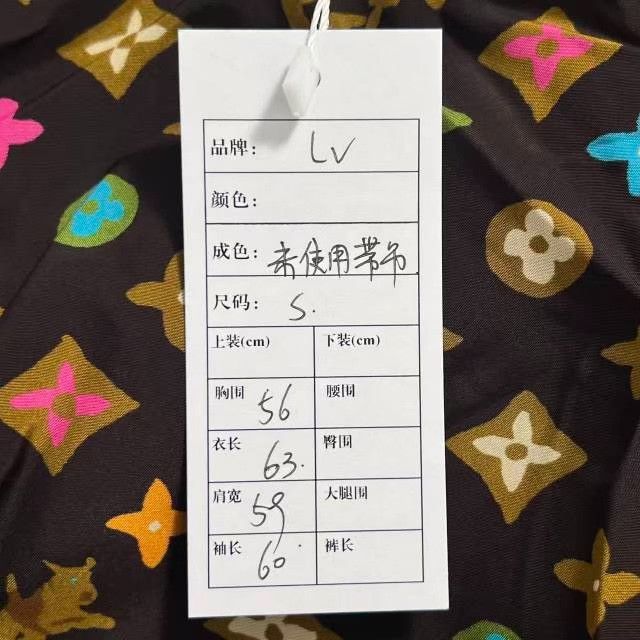 品牌: LV
颜色:
成色: 未使用带吊
尺码: S.
上装(cm) 下装(cm)
胸围 56 腰围
衣长 63. 臀围
肩宽 59 大腿围
袖长 60. 裤长